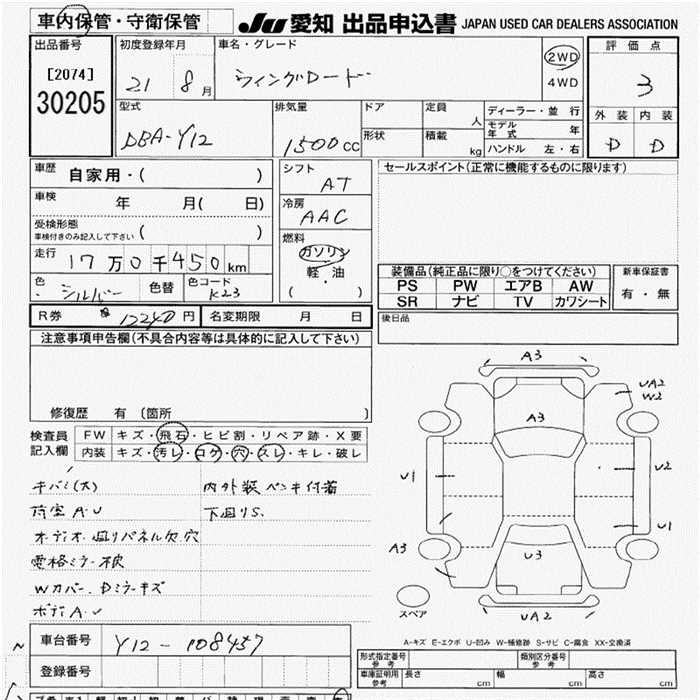 車内保管・守衛保管
JU 愛知 出品申込書 JAPAN USED CAR DEALERS ASSOCIATION
出品番号
[2074]
30205
初度登録年月
21 8月
車名・グレード
ウィングロード
2WD
4WD
評価点
3
外装 内装
D D
型式
DBA-Y12
排気量
1500cc
ドア
形状
定員
人
積載
kg
ディーラー・並行
モデル年式 年
ハンドル 左・右
車歴 自家用・( )
車検 年 月( 日)
受検形態
車検付きのみ記入して下さい ( )
走行 17万0千450km
色 シルバー 色替 色コード K23
シフト
AT
冷房
AAC
燃料
ガソリン
軽・油
( ・ )
セールスポイント(正常に機能するものに限ります)
装備品(純正品に限り○をつけてください)
PS PW エアB AW
SR ナビ TV カワシート
新車保証書
有・無
R券 12240円 名変期限 月 日
後日品
注意事項申告欄(不具合内容等は具体的に記入して下さい)
修復歴 有 (箇所 )
検査員記入欄
FW キズ・飛石・ヒビ割・リペア跡・X要
内装 キズ・汚レ・コゲ・穴・スレ・キレ・破レ
キバミ(大) 内外装ペンキ付着
荷室A.U 下廻りS.
オーディオ廻りパネル欠.穴
電格ミラー不良
Wカバー.Dミラーキズ
ボディA.U
A3
UA2
W2
A3
U1
U2
U1
A3
U3
UA2
スペア
A-キズ E-エクボ U-凹み W-補修跡 S-サビ C-腐食 XX-交換済
車台番号 Y12-108457
登録番号
形式指定番号
参考
類別区分番号
参考
車庫証明用
参考
長さ cm 幅 cm 高さ cm